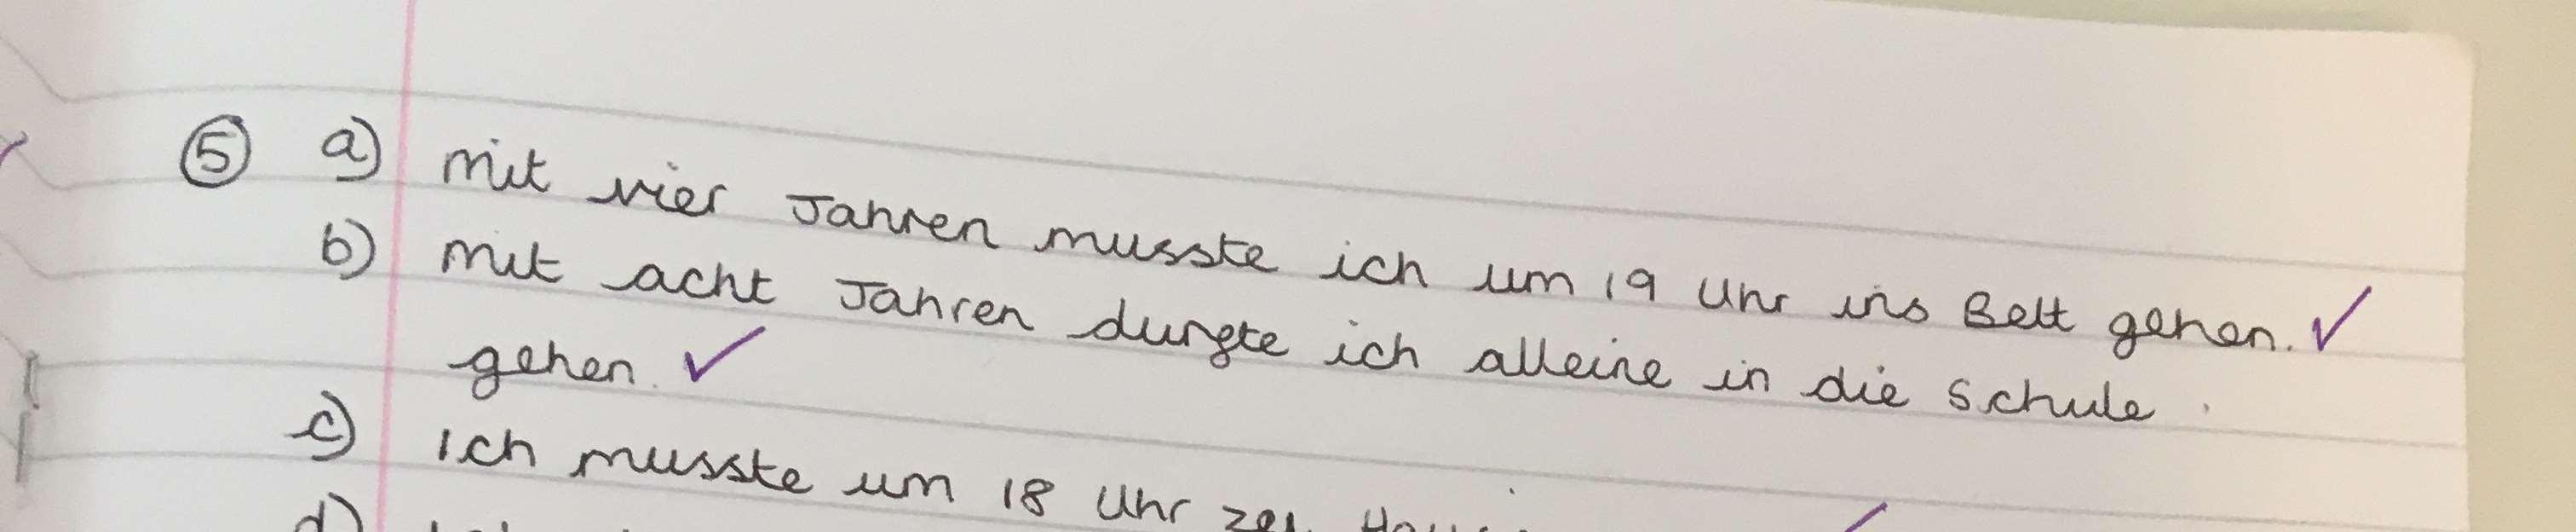 ⑤ a) mit vier Jahren musste ich um 19 Uhr ins Bett gehen.
b) mit acht Jahren durfte ich alleine in die Schule
gehen.
c) Ich musste um 18 Uhr
d)